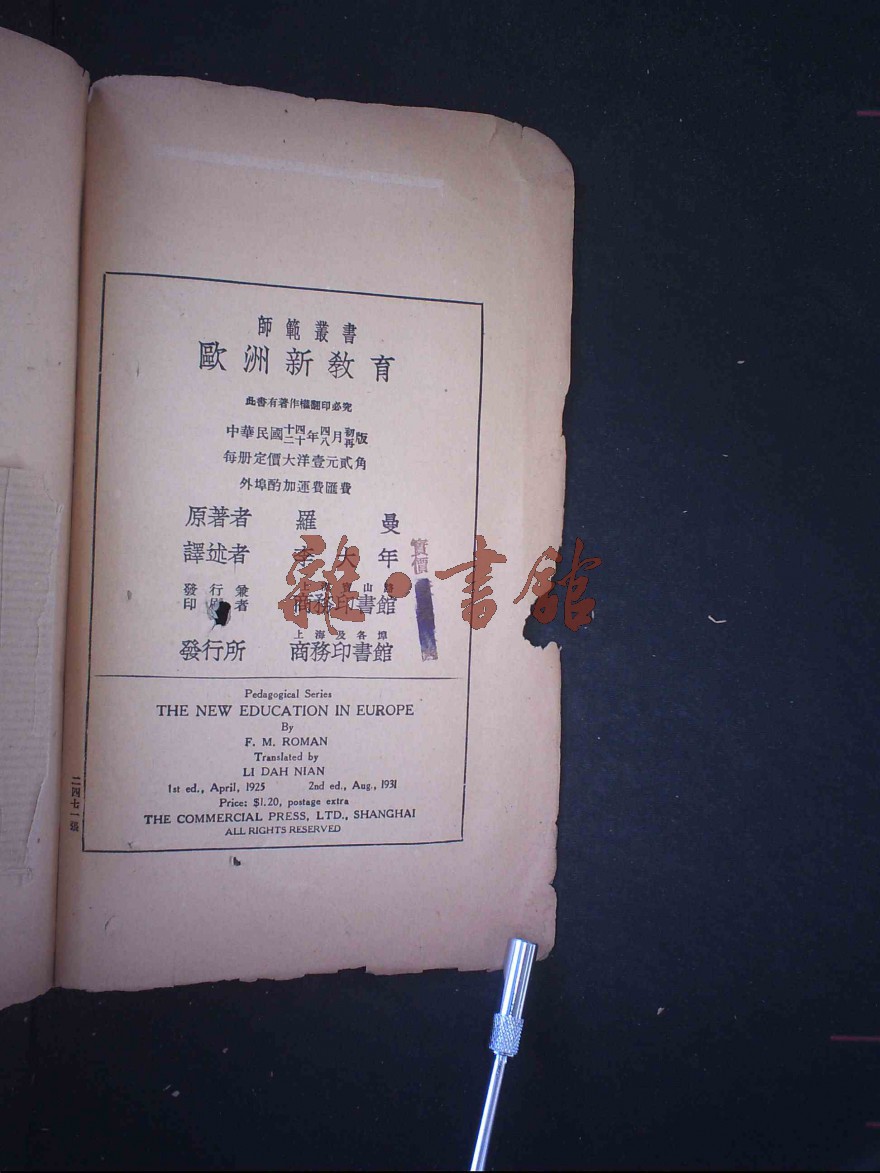 師範叢書
歐洲新教育
此書有著作權翻印必究
中華民國十四年四月初版
二十年八月再版
每册定價大洋壹元貳角
外埠酌加運費匯費
原著者 羅曼
譯述者 李大年
發行兼印刷者 上海寶山路 商務印書館
發行所 上海及各埠 商務印書館
實價
Pedagogical Series
THE NEW EDUCATION IN EUROPE
By
F. M. ROMAN
Translated by
LI DAH NIAN
1st ed., April, 1925 2nd ed., Aug., 1931
Price: $1.20, postage extra
THE COMMERCIAL PRESS, LTD., SHANGHAI
ALL RIGHTS RESERVED
二四七一
書館